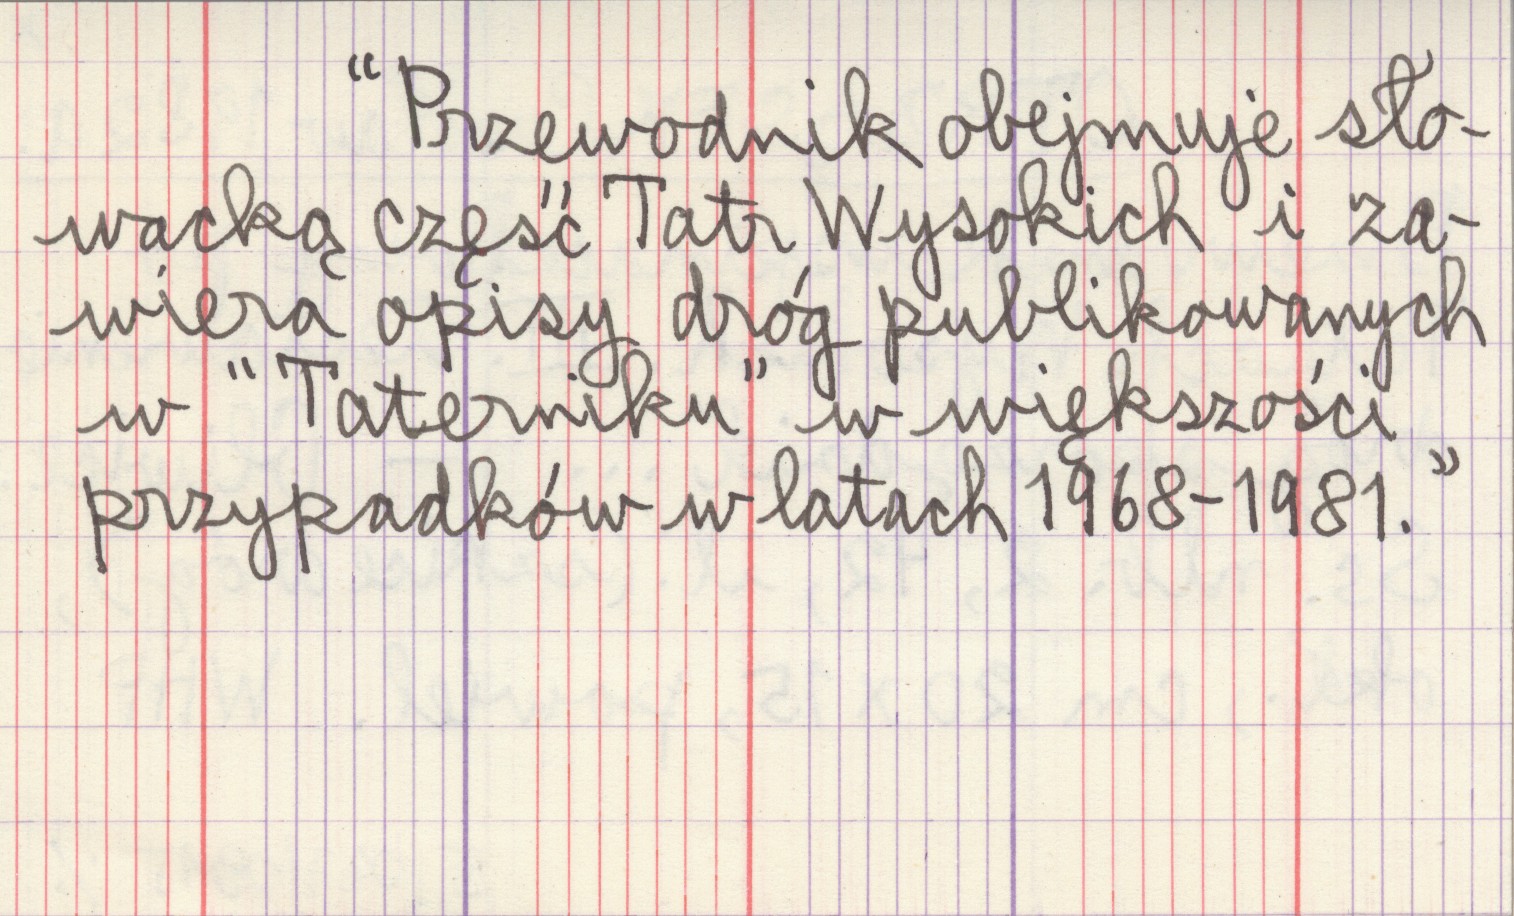 “Przewodnik obejmuje sło-
wacką część Tatr Wysokich i za-
wiera opisy dróg publikowanych
w “Taterniku” w większości
przypadków w latach 1968-1981.”